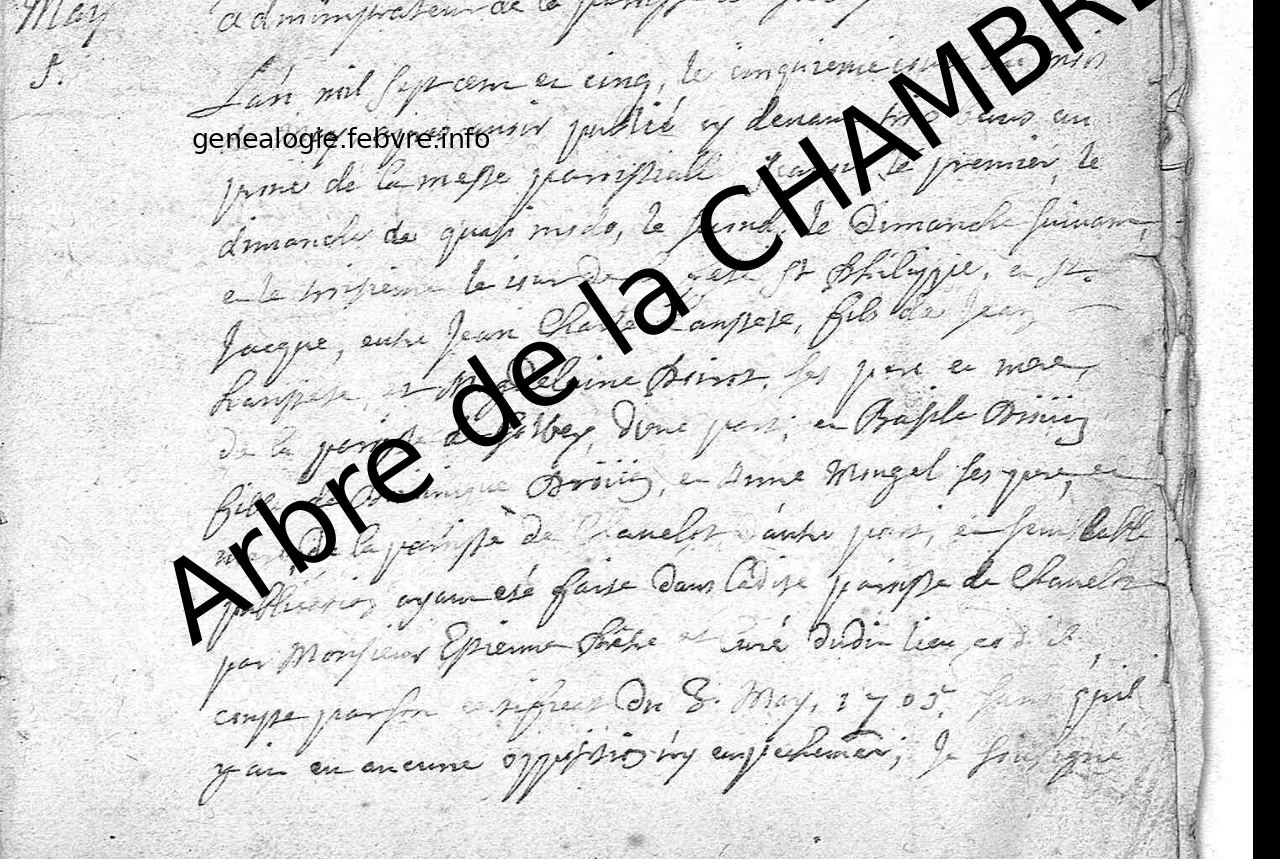 May
administrateur de la
5.
L'an mil sept cent et cinq, le cinquieme jour mois
publié cy devant trois au
prone de la messe paroissialle le premier, le
dimanche de quasi modo, le second, le Dimanche suivant,
et le troisieme le jour de feste St Philippe, et St
Jacque, entre Jean Charle fils de Jean
et Magdelaine ses pere et mere,
de la paroisse de Golbey, d'une part, et Basile Drouin
fille de Dominique Drouin, et Anne Mongel ses pere, et
mere, de la paroisse de Chavelot d'autre part, et semblable
publication ayant esté faite dans ladite paroisse de Chavelot
par Monsieur Estienne curé dudit lieu
conste par son certificat du 3. May, 1705. sans qu'il
y ait eu aucune opposition ny empechement; Je soussigné
genealogie.febvre.info
Arbre de la CHAMBRE